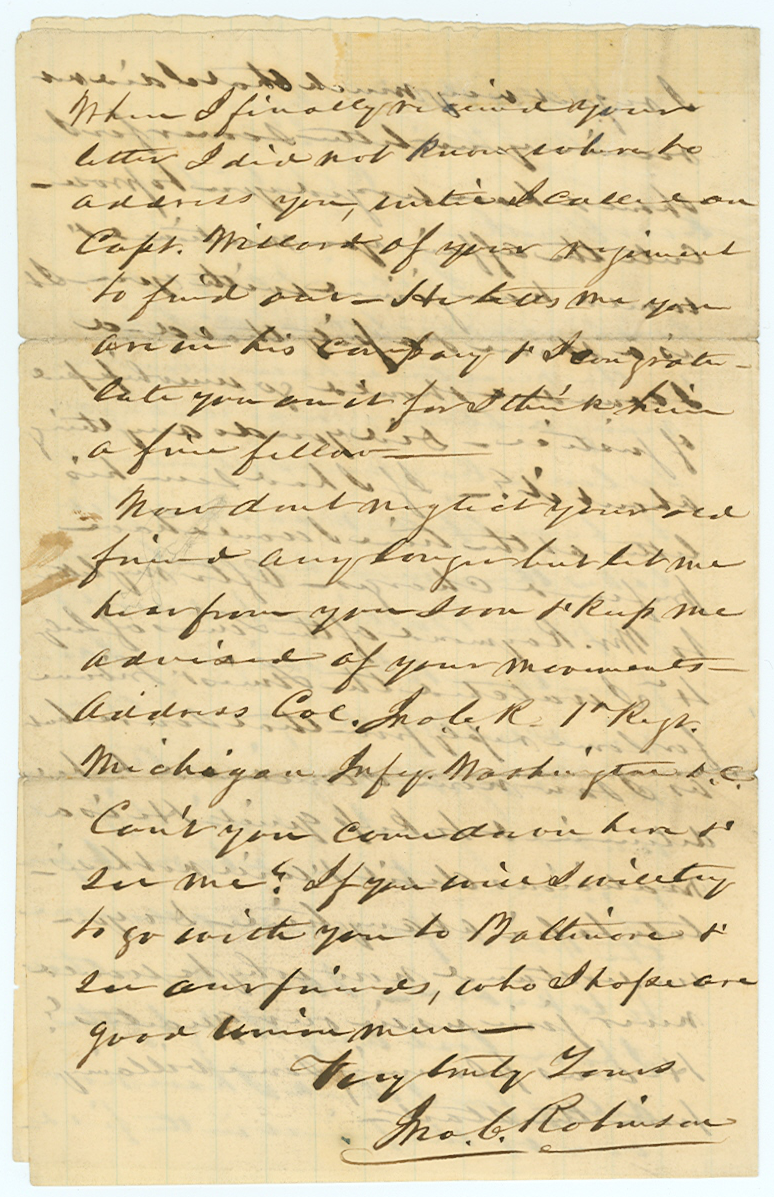 When I finally received your
letter I did not know where to
address you, until I called on
Capt. Willard of your regiment
to find out – He tells me you
are in his company & I congratu-
late you on it for I think him
a fine fellow —
Now dont neglect your old
friend any longer but let me
hear from you soon & keep me
advised of your movements –
Address Col. Jno. C. R– 1st Regt.
Michigan Infy. Washington D.C.
Can't you come down here &
see me? If you will I will try
to go with you to Baltimore &
see our friends, who I hope are
good Union men —
Very truly Yours
Jno. C. Robinson